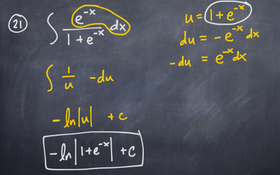 21 ∫ e^-x / 1 + e^-x dx
u = 1 + e^-x
du = -e^-x dx
-du = e^-x dx
∫ 1/u -du
-ln|u| + c
-ln|1+e^-x| + c